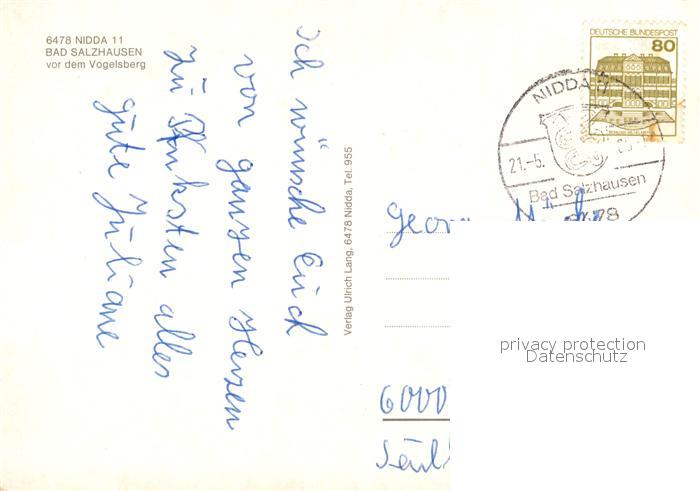 6478 NIDDA 11
BAD SALZHAUSEN
vor dem Vogelsberg
Ich wünsche Euch
von ganzen Herzen
zu Pfinksten alles
gute Juliane
Verlag Ulrich Lang, 6478 Nidda, Tel. 955
DEUTSCHE BUNDESPOST
80
NIDDA
21.-5.
Bad Salzhausen
6478
Georg
6000
privacy protection
Datenschutz